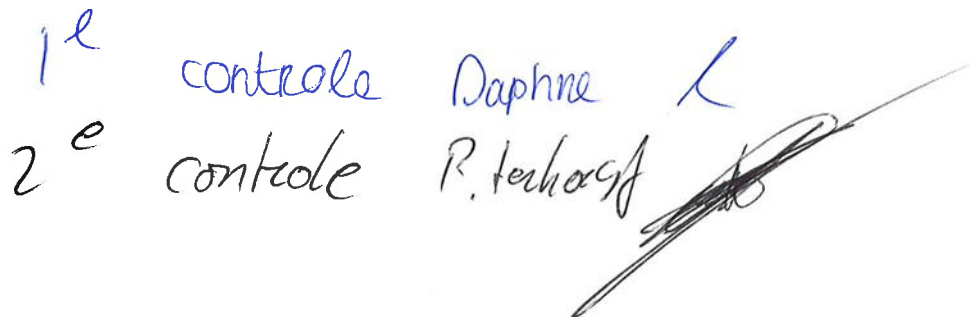 1e controle Daphne L
2e controle P. terhorst